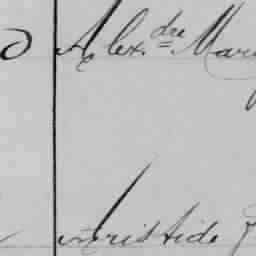 Alex.dre Mar
Aristide